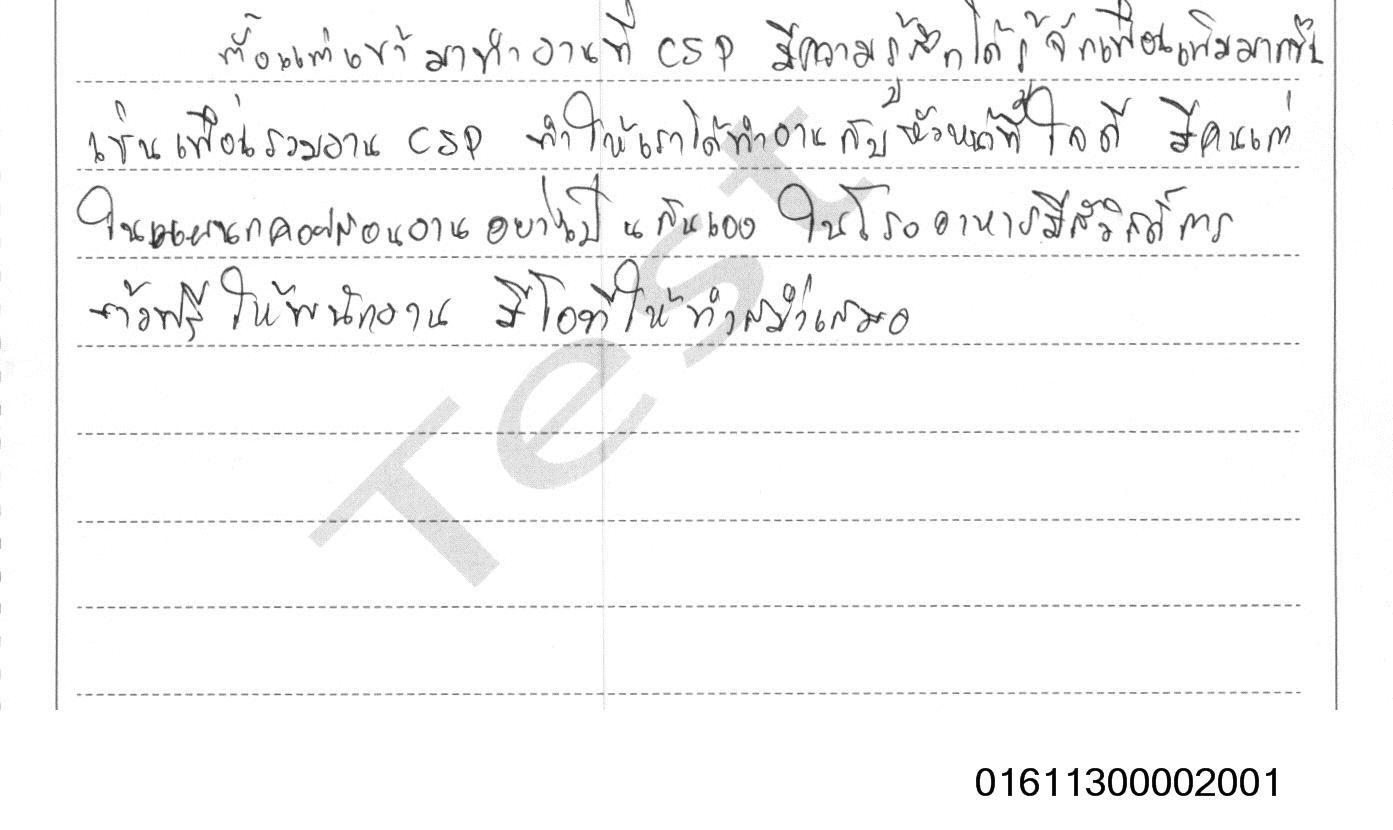 ตั้งแต่เข้ามาทำงานที่ CSP มีความรู้สึกได้รู้จักเพื่อนเพิ่มมากขึ้น
เช่นเพื่อนร่วมงาน CSP ทำให้เราได้ทำงานกับหัวหน้าที่ใจดี มีคนเก่า
ในแผนกคอยสอนงานอย่างเป็นกันเอง ในโรงอาหารมีสวัสดิ์การ
ข้าวฟรีให้พนักงาน มีโอทีให้ทำสม่ำเสมอ
Test
01611300002001